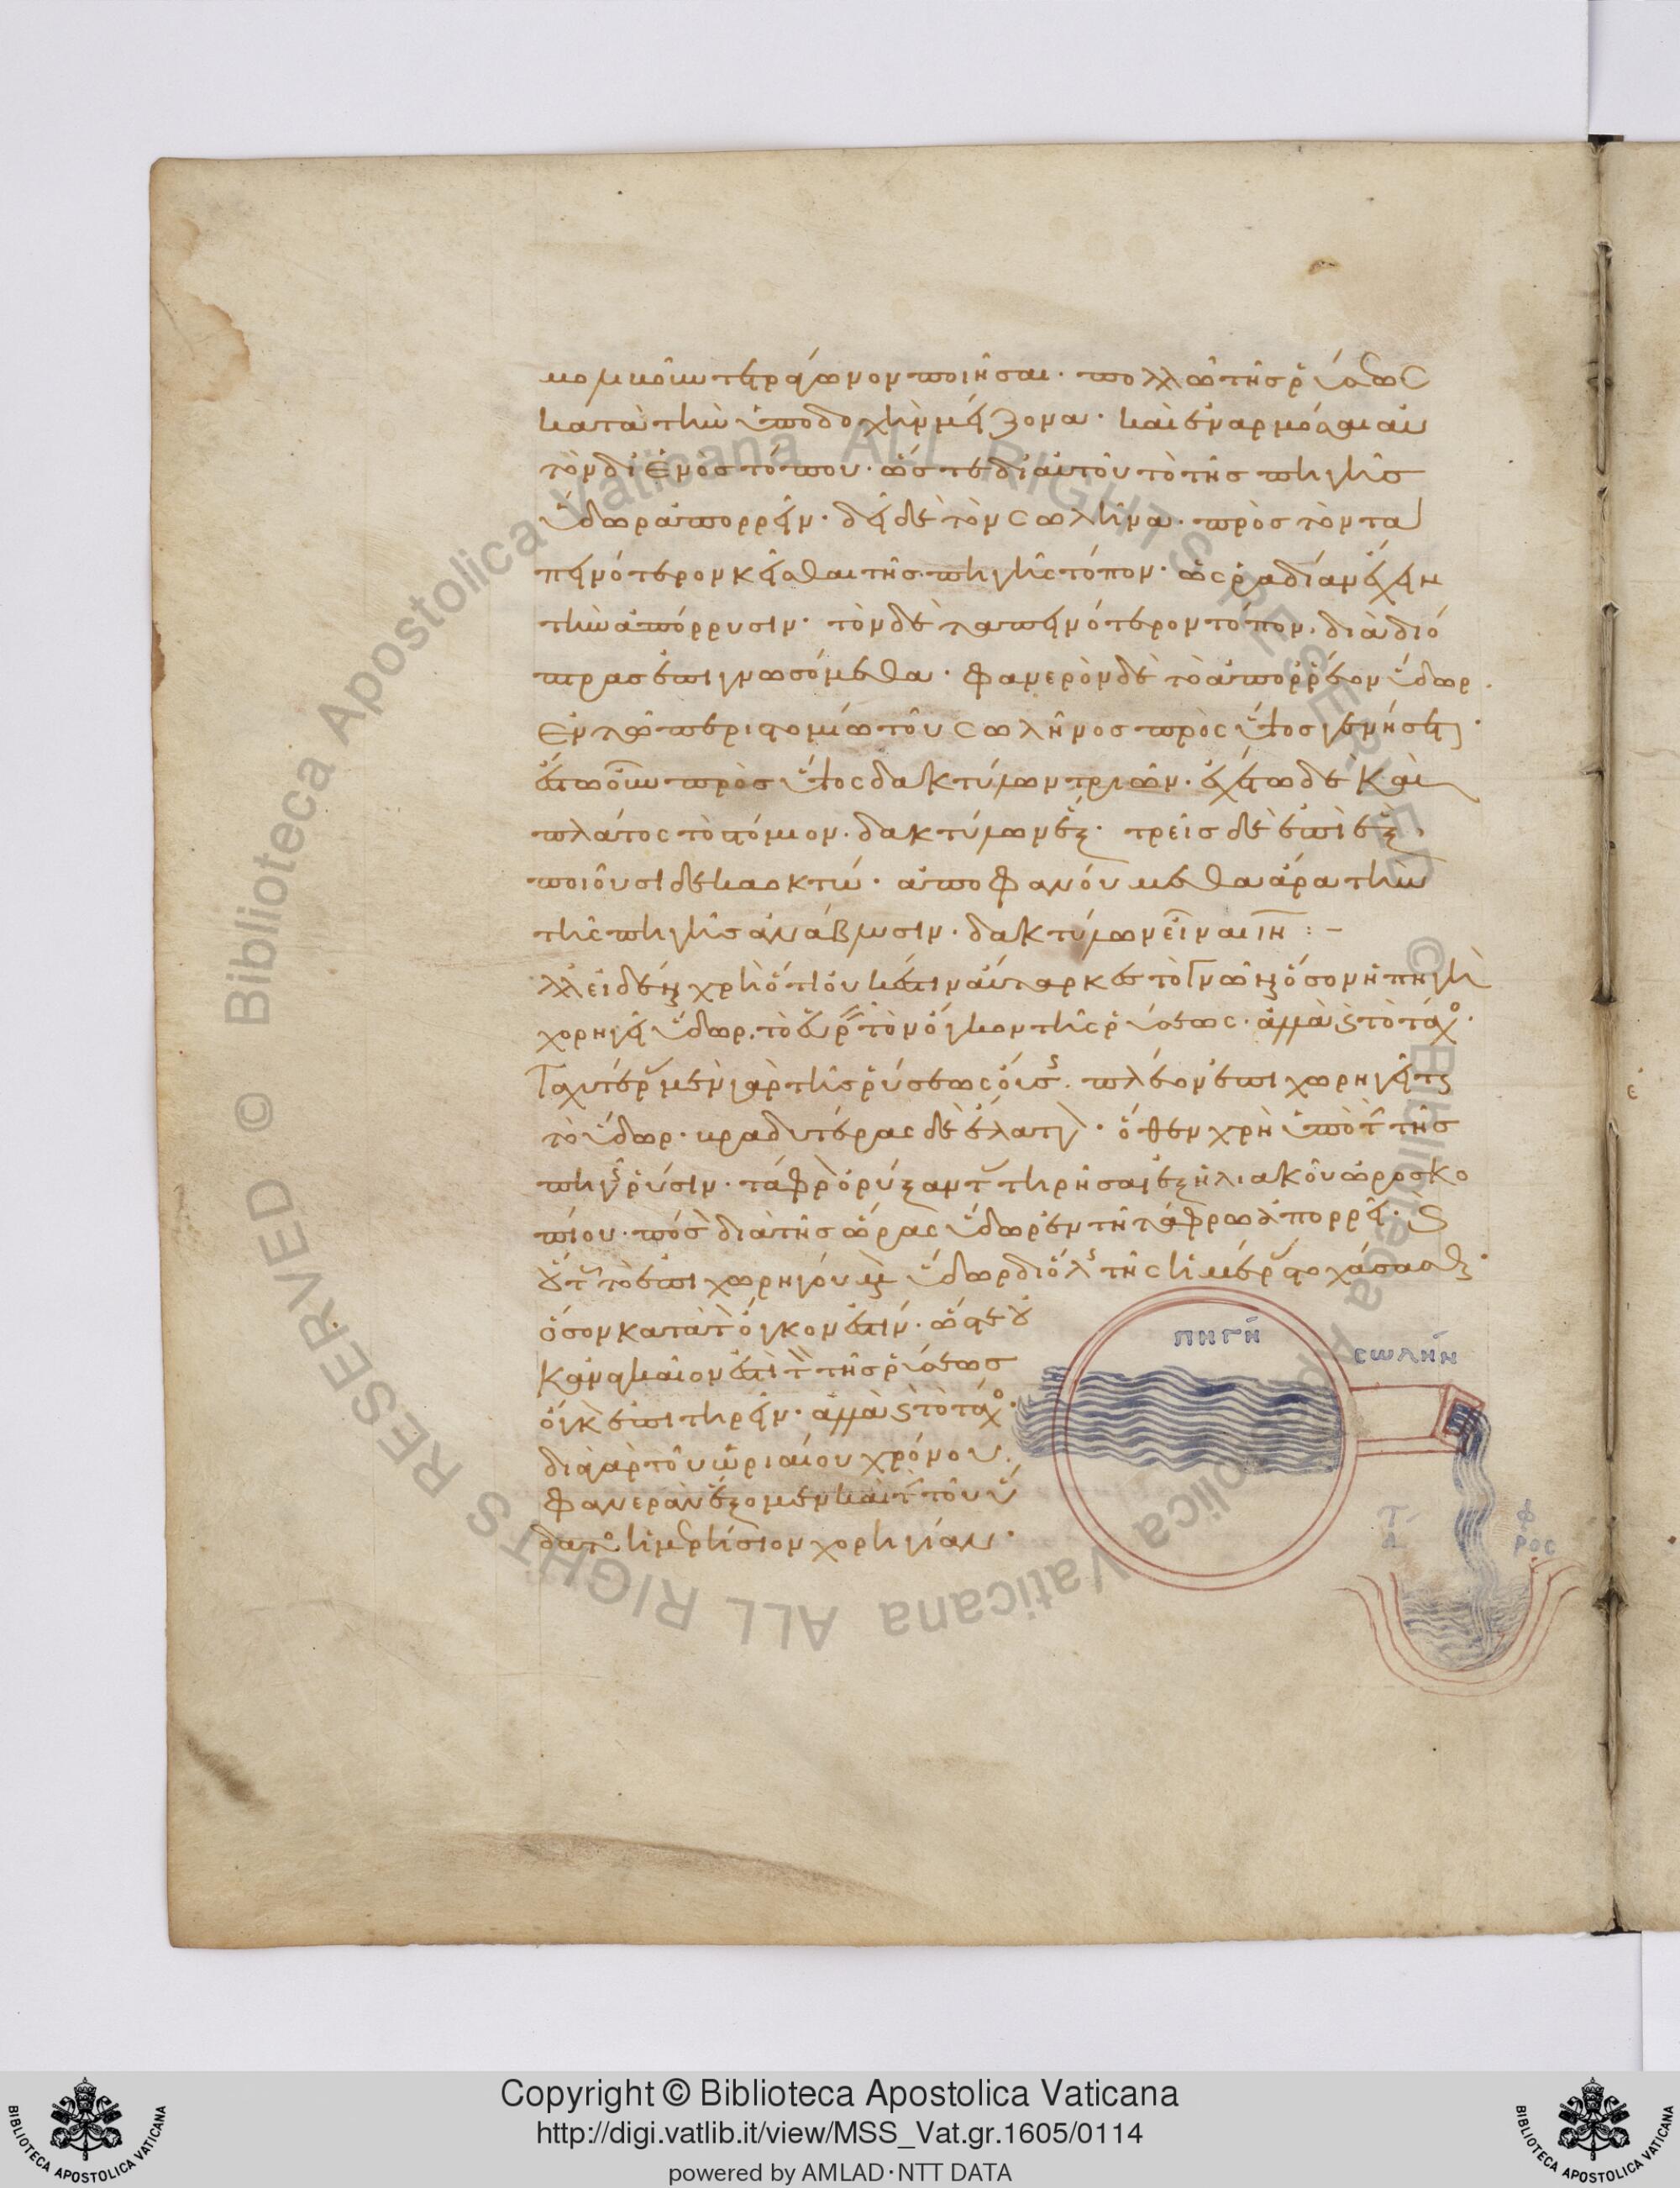 μολιβοῦν τετράγωνον ποιῆσαι· πολλῶ τῆς ῥύσεως
κατὰ τὴν ὑποδοχὴν μείζονα· καὶ ἐναρμόσαι αὐ
τὸν δι ἑνὸς τόπου· ὥστε δι αὐτοῦ τὸ τῆς πηγῆς
ὕδωρ ἀπορρεῖν· δεῖ δὲ τὸν σωλῆνα· πρὸς τὸν τα
πεινότερον κεῖσθαι τῆς πηγῆς τόπον· ὡς ῥαδίαν ἔχειν
τὴν ἀπόρρυσιν· τὸν δὲ ταπεινότερον τόπον· διὰ διό
πτρας ἐπιγνωσόμεθα· φανερὸν δὲ τὸ ἀπορρέον ὕδωρ·
ἐν τῶ περιστομίω τοῦ σωλῆνος πρὸς ὕψος γενήσεται·
ἔστω οὖν πρὸς ὕψος δακτύλων τριῶν· ἐχέτω δὲ καὶ
πλάτος τὸ στόμιον· δακτύλων ἕξ· τρεῖς δὲ ἐπὶ ἕξ·
ποιοῦσι δεκαοκτώ· ἀποφανούμεθα ἄρα τὴν
τῆς πηγῆς ἀνάβλυσιν· δακτύλων εἶναι ιη :–
χορηγεῖ ὕδωρ· τὸ εὑρεῖν τὸν ὄγκον τῆς ῥύσεως· ἀλλὰ καὶ τὸ τάχος·
Ταχυτέρας μὲν γὰρ τῆς ῥύσεως οὔσης· πλέον ἐπιχωρηγεῖται
τὸ ὕδωρ· βραδυτέρας δὲ ἔλαττον· ὅθεν χρὴ ὑπὸ τὴν τῆς
πηγῆς ῥύσιν· τάφρον ὀρύξαντας τηρῆσαι ἐξ ἡλιακοῦ ὡροσκο
πίου· πόσον διὰ τῆς ὥρας ὕδωρ ἐν τῆ τάφρω ἀπορρεῖ· καὶ
οὕτως τὸ ἐπιχωρηγούμενον ὕδωρ δι ὅλης τῆς ἡμέρας στοχάσασθαι·
ὅσον κατὰ τὸν ὄγκον ἐστίν· ὥστε οὐ
κ ἀναγκαῖον ἐστὶ τὸν τῆς ῥύσεως
ὄγκον ἐπιτηρεῖν· ἀλλὰ καὶ τὸ τάχος·
διὰ γὰρ τοῦ ὡριαίου χρόνου·
φανερὰν ἕξομεν καὶ τὴν τοῦ ὕ
δατος ἡμερήσιον χορηγίαν·
ΠΗΓΉ
CΩΛΉΝ
ΤΆ ΦΡΟC
Copyright © Biblioteca Apostolica Vaticana
http://digi.vatlib.it/view/MSS_Vat.gr.1605/0114
powered by AMLAD·NTT DATA
BIBLIOTECA APOSTOLICA VATICANA
BIBLIOTECA APOSTOLICA VATICANA
© Biblioteca Apostolica Vaticana ALL RIGHTS RESERVED
© Biblioteca Apostolica Vaticana ALL RIGHTS RESERVED